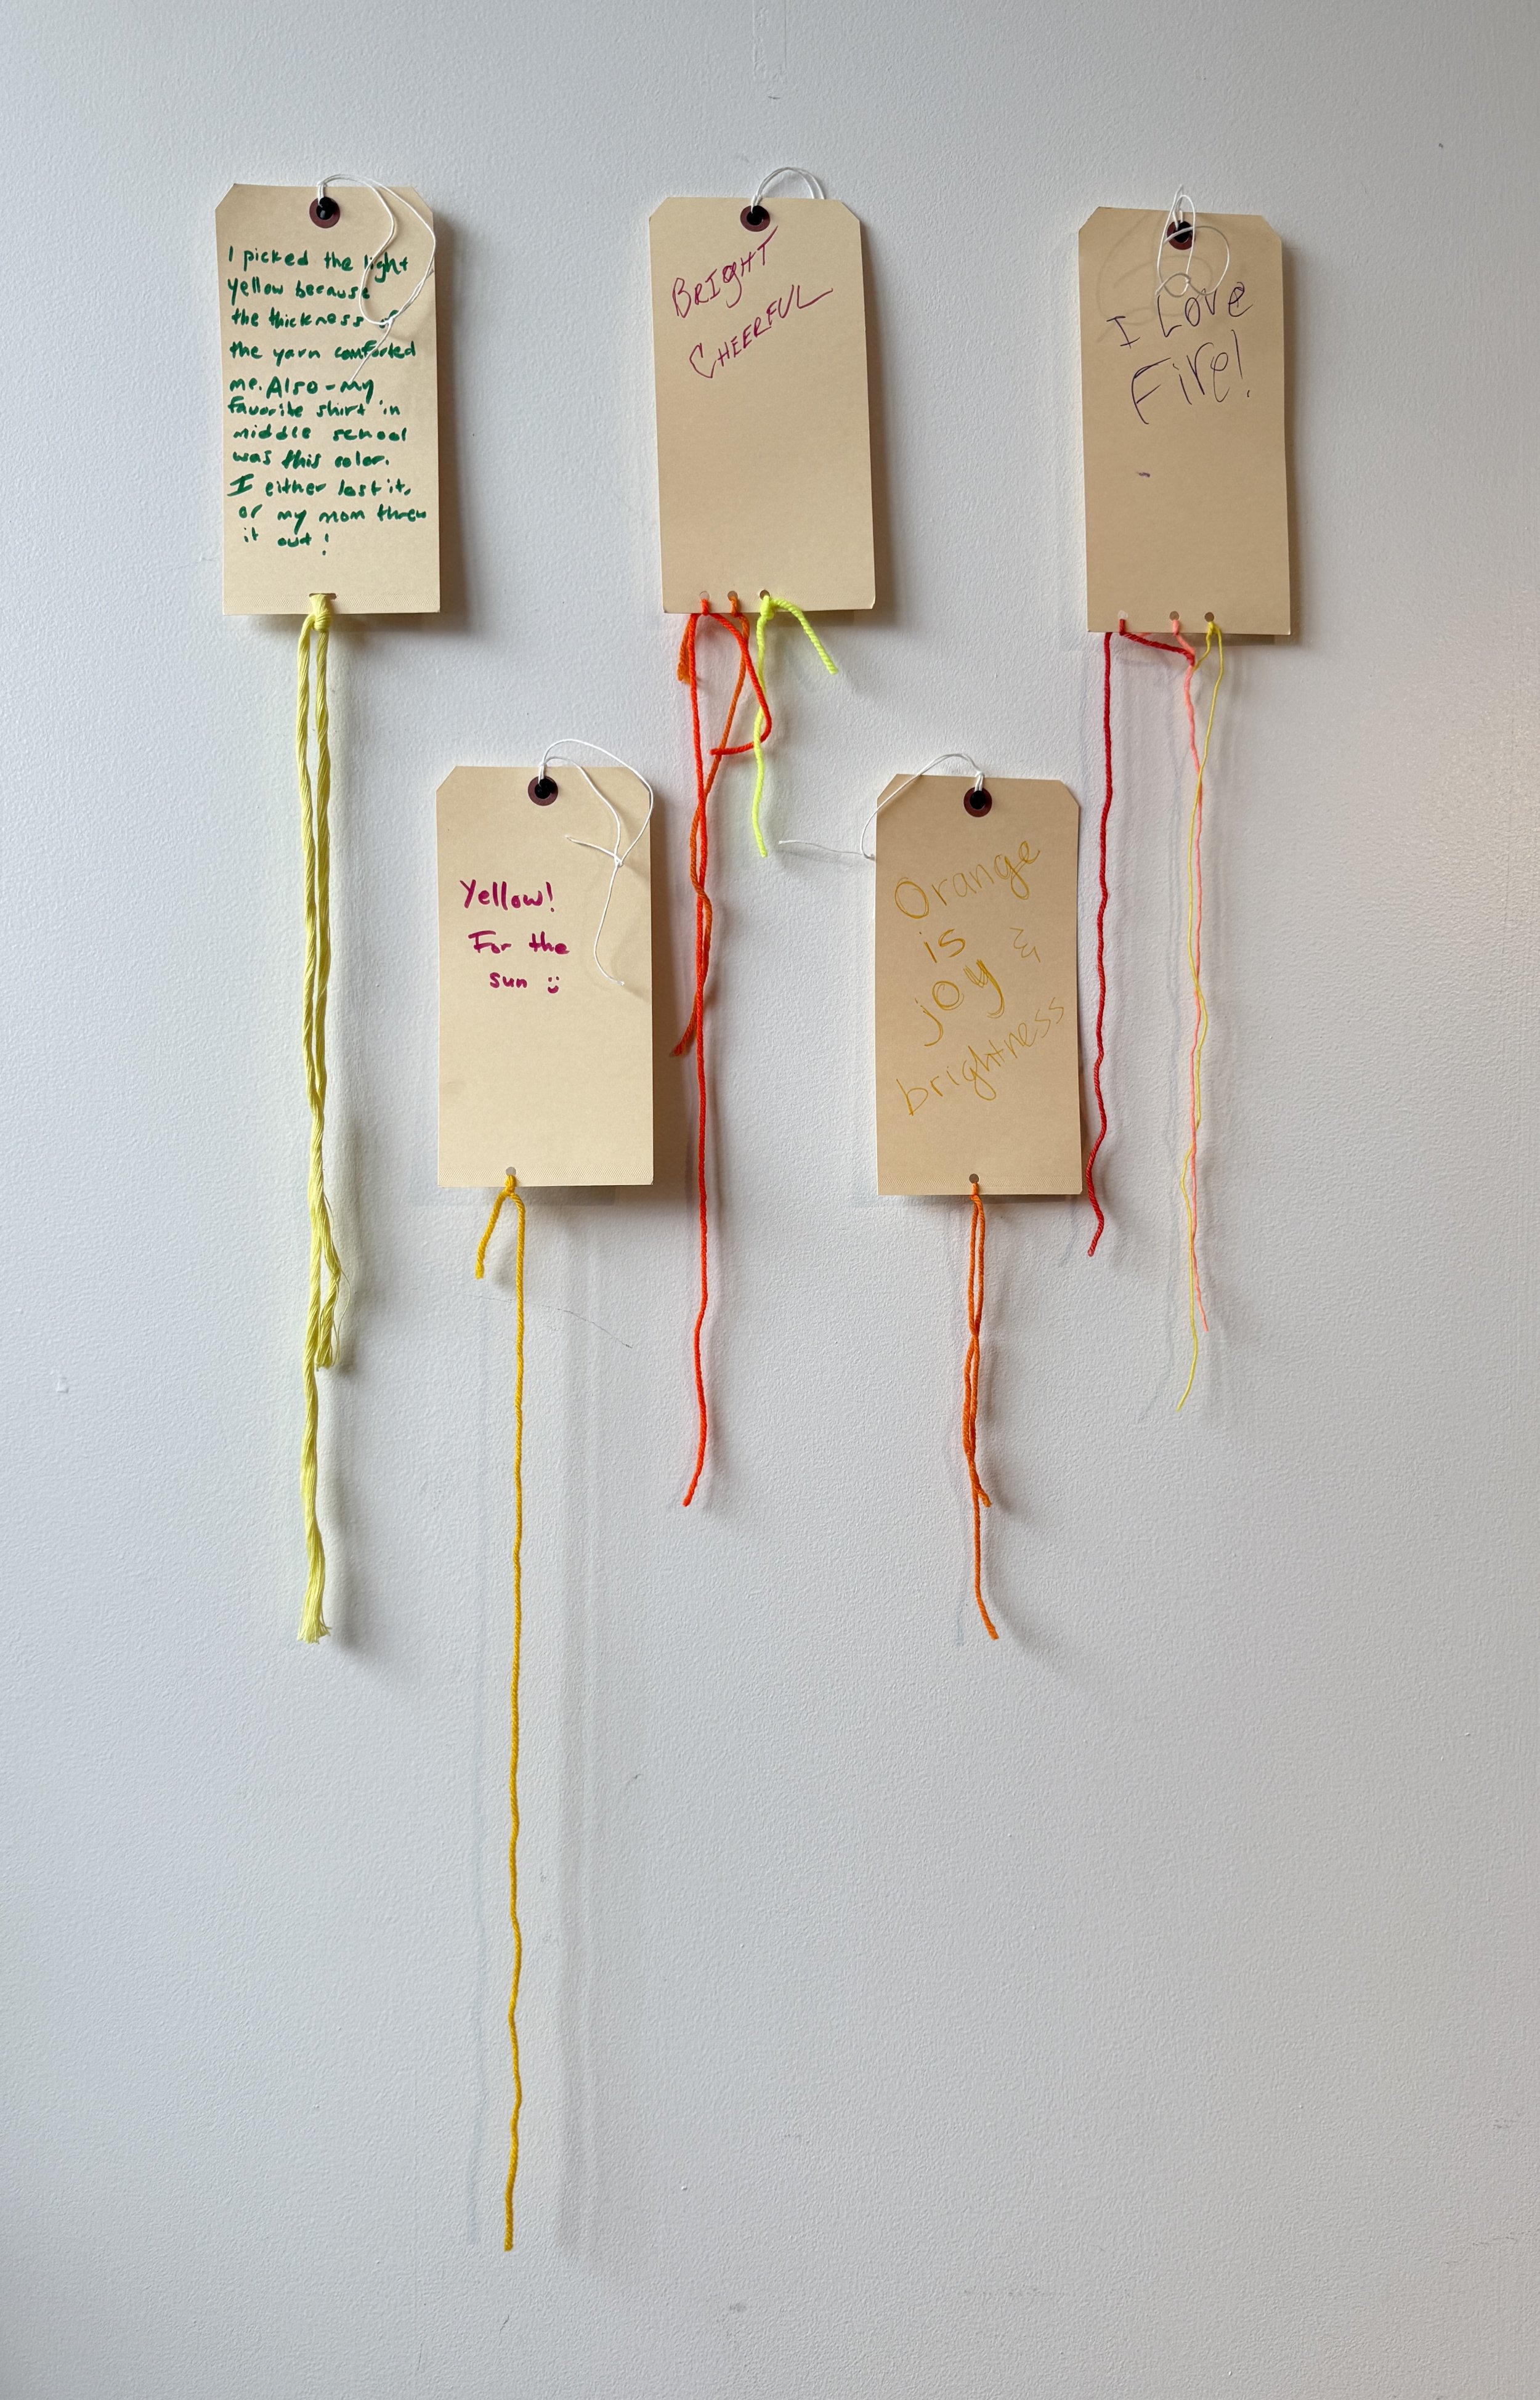 I picked the light
yellow because
the thickness of
the yarn comforted
me. Also - my
favorite shirt in
middle school
was this color.
I either lost it,
or my mom threw
it out!
BRIGHT
CHEERFUL
I Love
Fire!
Yellow!
For the
sun :)
Orange
is &
joy
brightness